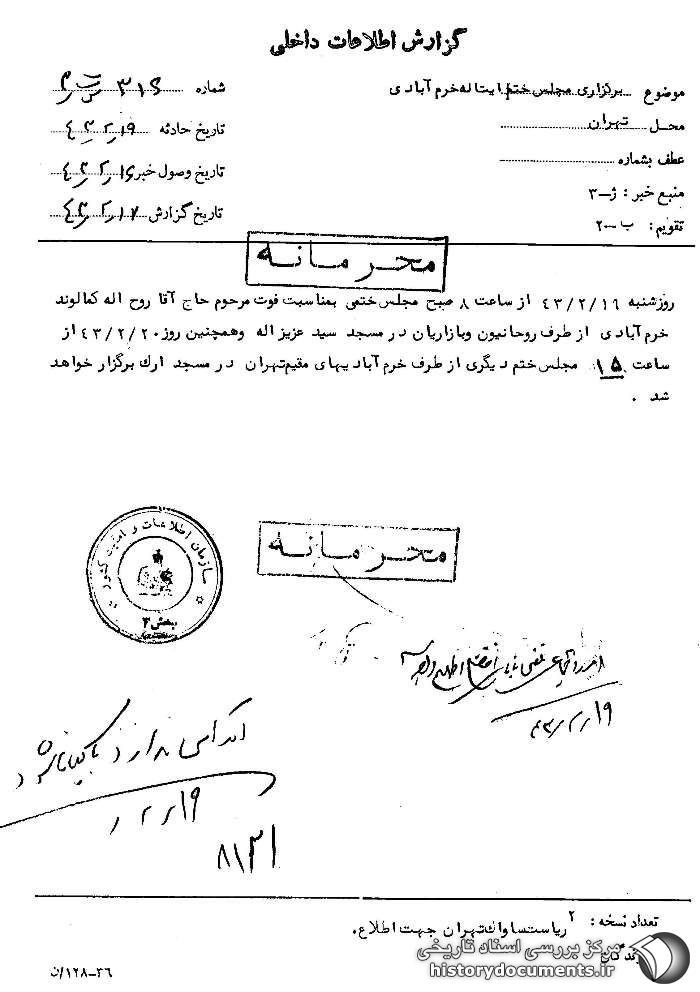 گزارش اطلاعات داخلی
موضوع برگزاری مجلس ختم ایتاله خرم آبادی
شماره ۳۱۶
محل تهران
تاریخ حادثه
عطف بشماره
تاریخ وصول خبر
منبع خبر : ژ-۳
تاریخ گزارش
تقویم : ب-۲
محرمانه
روزشنبه ۴۳/۲/۱۶ از ساعت ۸ صبح مجلس ختمی بمناسبت فوت مرحوم حاج آقا روح اله کمالوند
خرم آبادی از طرف روحانیون وبازاریان در مسجد سید عزیز اله وهمچنین روز ۴۳/۲/۲۰ از
ساعت ۱۵ مجلس ختم دیگری از طرف خرم آبادیهای مقیم تهران در مسجد ارك برگزار خواهد
شد .
محرمانه
سازمان اطلاعات و امنیت کشور
بخش ۳
۴۳/۲/۱۹
اقدامی ندارد بایگانی شود
۲/۱۹
تعداد نسخه : ۲
ریاست ساواك تهران جهت اطلاع.
مرکز بررسی اسناد تاریخی
historydocuments.ir
۳۶-۱۲۸/ن